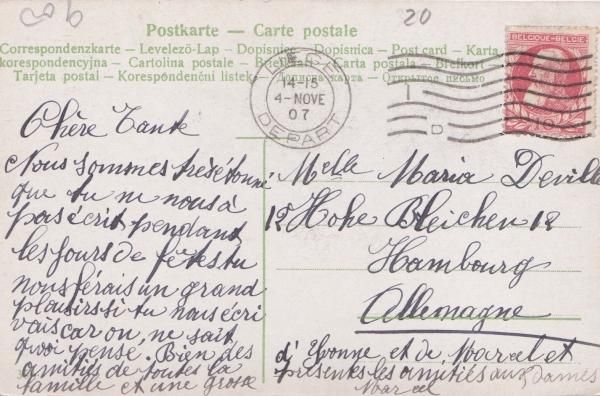 20
Postkarte — Carte postale
Correspondenzkarte — Levelező-Lap — Dopisnice — Dopisnica — Post card — Karta
korespondencyjna — Cartolina postale — Briefkaart — Carta postala — Brefkort
Tarjeta postal — Korespondenční listek — Почтовая карта — Открытое письмо
BELGIQUE-BELGIE
LIEGE
14-15
4-NOVE
07
DEPART
10
Chère Tante
Nous sommes très étonné
que tu ne nous à
pas écrit pendant
les jours de fêtes tu
nous férais un grand
plaisirs si tu nous écri
vais car on, ne sait,
quoi pensé. Bien des
amitiés de toutes la
famille et une grosse
Melle Maria Deville
12 Hohe Bleichen 12
Hambourg
Allemagne
d'Yvonne et de Marcel et
présentes les amitiés aux Dames
Marcel